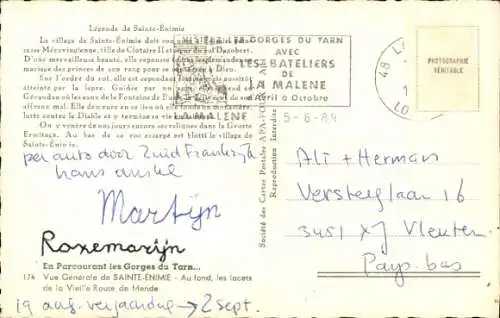 Légende de Sainte-Énimie
La village de Sainte-Énimie doit son
cesse Mérovingienne, fille de Clotaire II et du roi Dagobert.
D'une merveilleuse beauté, elle repoussa
mariage des princes de son rang pour se
Sur l'ordre du roi, elle est cependant
atteinte par la lèpre. Guidée par un
Gévaudan où les eaux de la Fontaine de
affreux mal. Elle demeure en ce lieu où
lutte contre le Diable et y termine sa vie
On y vénère de nos jours encore ses reliques dans la Grotte
Ermitage. Au bas de ce roc escarpé est blotti le village de
Sainte-Énimie.
GORGES DU TARN
AVEC
LES BATELIERS
DE
LA MALENE
Avril à Octobre
LA MALENE
48
5-6-89
PHOTOGRAPHIE
VÉRITABLE
per auto door Zuid Frankrijk
hans anske
Martijn
Rozemarijn
En Parcourant les Gorges du Tarn...
174 Vue Générale de SAINTE-ENIMIE - Au fond, les lacets
de la Vieille Route de Mende
19 aug. verjaardag → 2 sept.
Société des Cartes Postales APA-POUX
Reproduction Interdite
Ali + Herman
Versteeglaan 16
3451 XJ Vleuten
Pays-bas